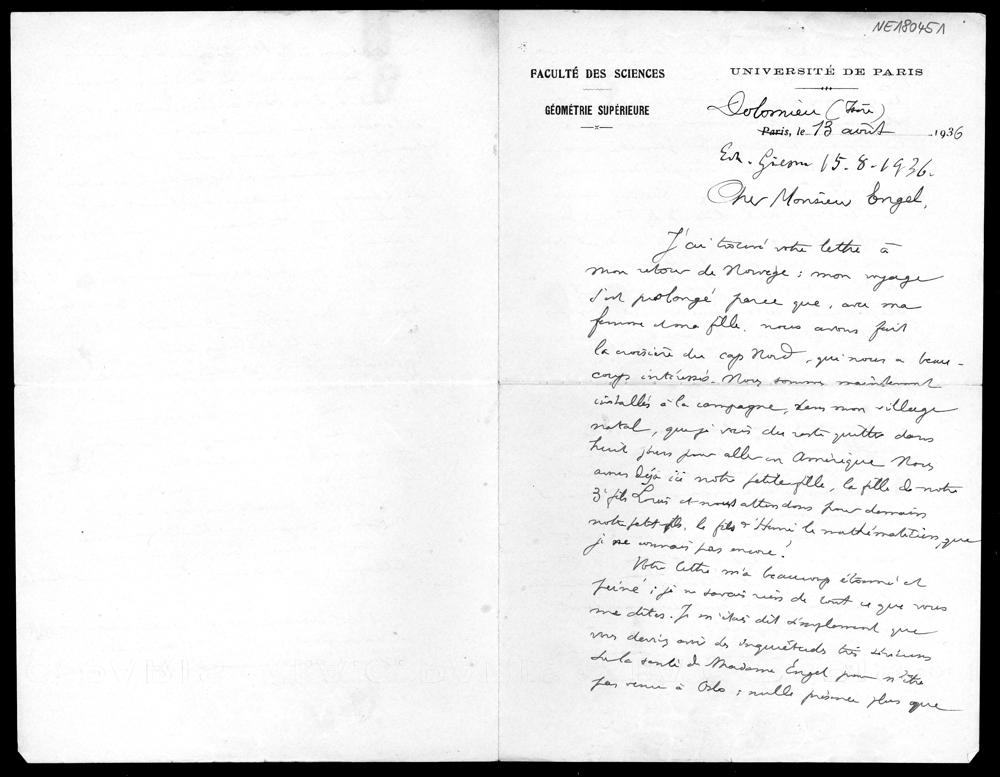 NE180451
FACULTÉ DES SCIENCES
GÉOMÉTRIE SUPÉRIEURE
UNIVERSITÉ DE PARIS
Dolomieu (Isère)
Paris, le 13 août 1936
Giessen 15.8.1936.
Cher Monsieur Engel,
J'ai trouvé votre lettre à
mon retour de Norvège ; mon voyage
s'est prolongé parce que, avec ma
femme et ma fille, nous avons fait
la croisière du cap Nord, qui nous a beau-
coup intéressés. Nous sommes maintenant
installés à la campagne, dans mon village
natal, que je vais du reste quitter dans
huit jours pour aller en Amérique. Nous
avons déjà ici notre petite fille, la fille de notre
3e fils Louis et nous attendons pour demain
notre petit fils, le fils d'Henri le mathématicien, que
je ne connais pas encore !
Votre lettre m'a beaucoup étonné et
peiné ; je ne savais rien de tout ce que vous
me dites. Je m'étais dit simplement que
vous deviez avoir des inquiétudes très sérieuses
sur la santé de Madame Engel pour n'être
pas venu à Oslo ; nulle présence plus que